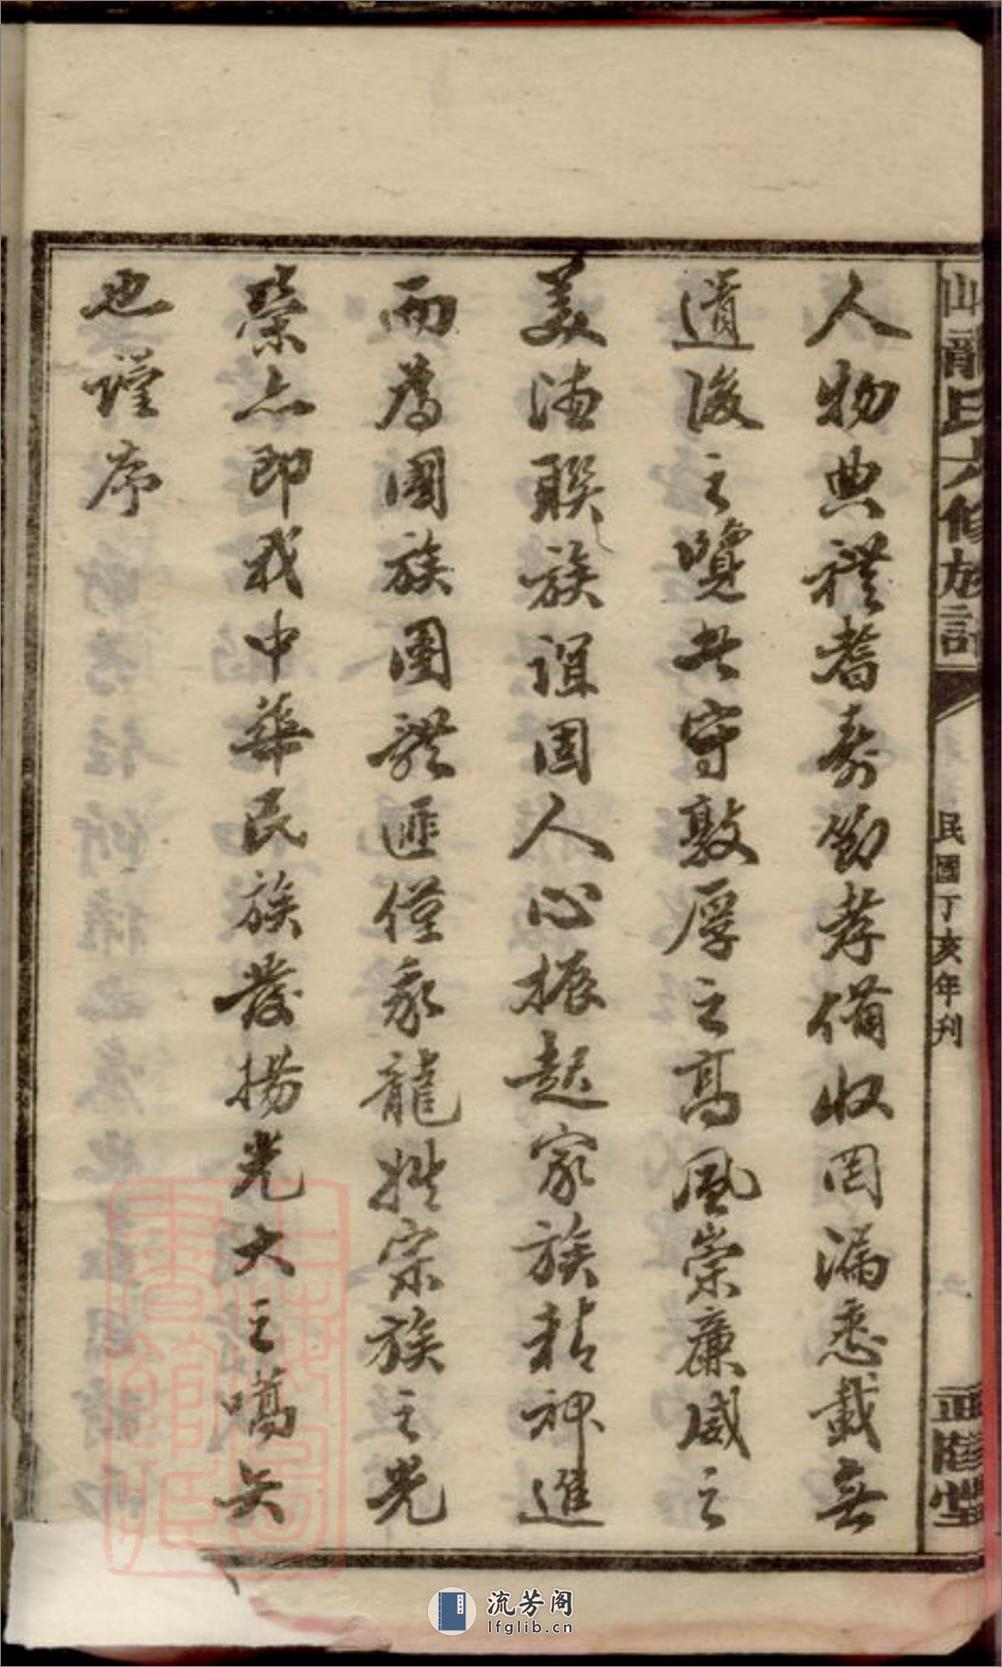 人物典禮耆壽節孝備收罔漏悉載無
遺後之覽者守敦厚之高風崇廉威之
美德聯族誼固人心振起家族精神進
而為國族團體匪僅永龍排宗族之光
榮亦即我中華民族發揚光大之嚆矢
也謹序
龍氏六修族譜
民國丁亥年刊
堂
上海圖書館藏
流芳阁
lfglib.cn